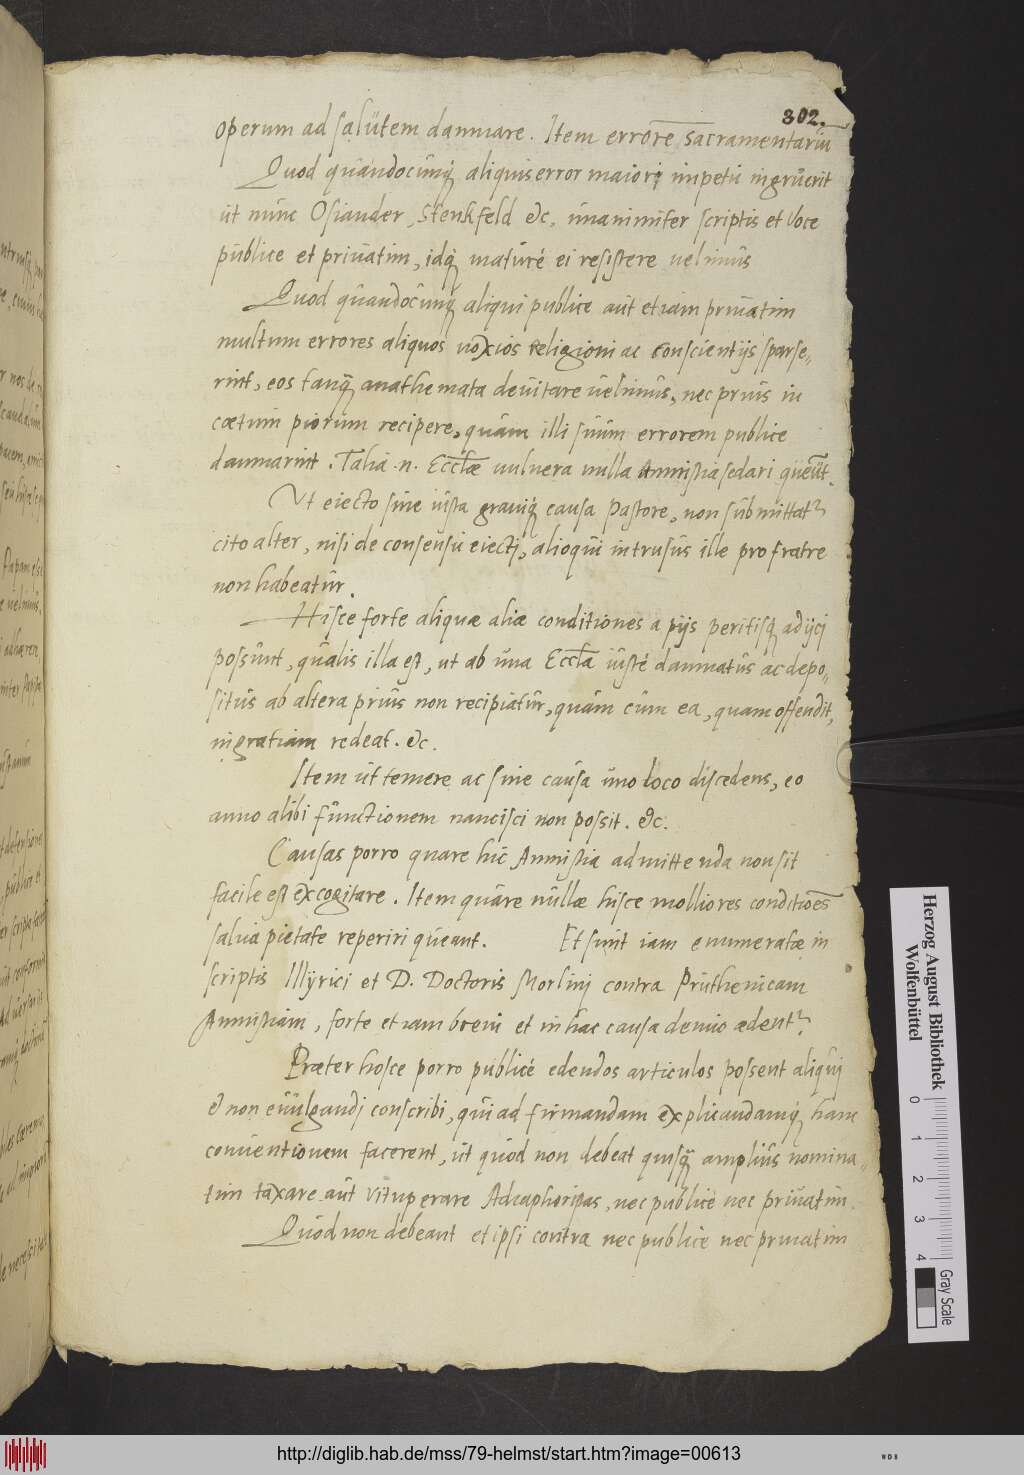 302.
operum ad salutem damnare. Item errorē sacramentariū
Quod quandocunq; aliquis error maiori impetu ingruerit
ut nunc Osiander, Stenkfeld &c. unanimiter scriptis et voce
publice et priuatim, idq; maturè ei resistere uelimus
Quod quandocunq; aliqui publice aut etiam priuatim
multum errores aliquos noxios religioni ac conscientijs sparse„
rint, eos tanq̄ anathemata deuitare uelimus, nec prius in
cœtum piorum recipere, quàm illi suum errorem publice
damnarint. Talia .n. Ecclæ uulnera nulla Amnistia sedari queūt.
Ut eiecto sine iusta grauiq; causa Pastore, non submittat᷑
cito alter, nisi de consensu eiecti, alioqui intrusus ille pro fratre
non habeatur.
Hisce forte aliquæ aliæ conditiones a pijs peritisq; adijci
possunt, qualis illa est, ut ab una Eccla iustè damnatus ac depo„
situs ab altera prius non recipiatur, quàm cum ea, quam offendit,
in gratiam redeat. &c.
Item ut temere ac sine causa uno loco discedens, eo
anno alibi functionem nancisci non possit. &c.
Causas porro quare hic Amnistia admittenda non sit
facile est excogitare. Item quare nullæ hisce molliores conditiōes
salua pietate reperiri queant. Et sunt iam enumeratæ in
scriptis Illyrici et D. Doctoris Morlini contra Pruthenicam
Amnistiam, forte etiam breui et in hac causa denuo ædent᷑.
Præter hosce porro publicè edendos articulos possent aliqui
& non euulgandi conscribi, qui ad firmandam explicandamq; hanc
conuentionem facerent, ut quod non debeat quisq̄ amplius nomina„
tim taxare aut vituperare Adiaphoristas, nec publicè nec priuatim.
Quod non debeant et ipsi contra nec publicè nec priuatim
Herzog August Bibliothek
Wolfenbüttel
0 1 2 3 4
Gray Scale
http://diglib.hab.de/mss/79-helmst/start.htm?image=00613